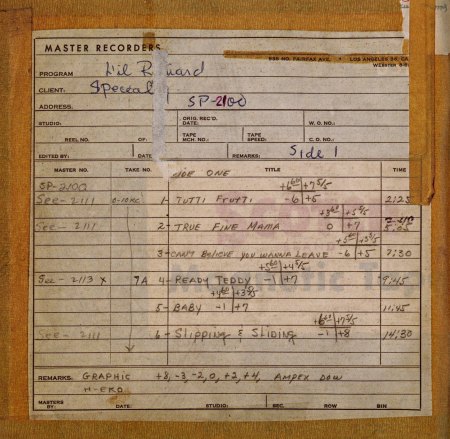 MASTER RECORDERS
535 NO. FAIRFAX AVE. • LOS ANGELES 36, CA
WEBSTER
PROGRAM Lil R hard
CLIENT: Specealty
ADDRESS. SP-2100
STUDIO: ORIG. REC'D. DATE: W. O. NO.:
REEL NO. OF: TAPE MCH. NO.: TAPE SPEED: C. O. NO.:
EDITED BY: DATE REMARKS: Side 1
MASTER NO. TAKE NO. SIDE ONE TITLE TIME
SP-2100
See - 2111 0-10KC 1- TUTTI FRUTTI -6 +5 2:23
See - 2111 2- TRUE FINE MAMA 0 +7 5:05
3- CAN'T BELIEVE YOU WANNA LEAVE -6 +5 7:30
See - 2113 X 7A 4- READY TEDDY -1 +7 9:45
5- BABY -1 +7 11:45
See - 2111 6- SLIPPING & SLIDING -1 +8 14:30
REMARKS: GRAPHIC +8, -3, -2, 0, +2, +4, AMPEX
MASTERS BY: DATE: STUDIO: SEC. ROW BIN